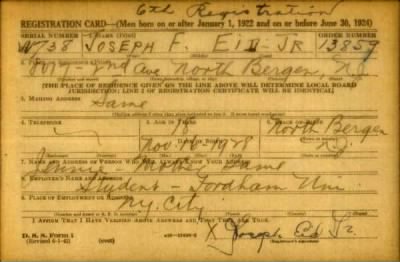 6th Registration
REGISTRATION CARD—(Men born on or after January 1, 1922 and on or before June 30, 1924)
SERIAL NUMBER 1. NAME (Print) ORDER NUMBER
N738 JOSEPH F. EID JR 13859
2. PLACE OF RESIDENCE (Print)
2nd Ave North Bergen, N.J.
[THE PLACE OF RESIDENCE GIVEN ON THE LINE ABOVE WILL DETERMINE LOCAL BOARD
JURISDICTION; LINE 2 OF REGISTRATION CERTIFICATE WILL BE IDENTICAL]
3. MAILING ADDRESS
Same
4. TELEPHONE 5. AGE IN YEARS
18 North Bergen
DATE OF BIRTH
Nov. N.J.
7. NAME AND ADDRESS OF PERSON WHO WILL ALWAYS KNOW YOUR ADDRESS
Mother Same
8. EMPLOYER'S NAME AND ADDRESS
Student - Fordham Uni
9. PLACE OF EMPLOYMENT OR BUSINESS
N.Y. City
I AFFIRM THAT I HAVE VERIFIED ABOVE ANSWERS AND THAT THEY ARE TRUE.
D. S. S. Form 1
(Revised 6-1-42) (over)
X Joseph Eid Jr.